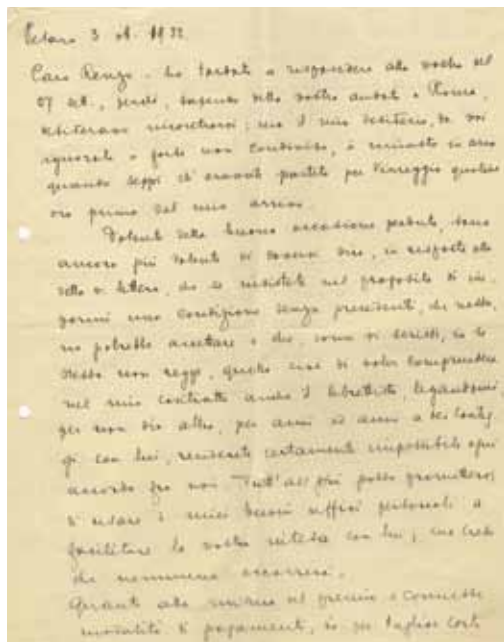 Pesaro 3 ott. 1932
Caro Renzo - ho tardato a rispondere alla vostra del
27 set., perché, sapendo della vostra andata a Roma,
desideravo incontrarvi; ma il mio desiderio, da voi
ignorato e forse non condiviso, è rimasto in aria
quando seppi ch'eravate partito per Viareggio qualche
ora prima del mio arrivo.
Dolente della buona occasione perduta, sono
ancora più dolente di dovervi dire, in risposta alla
detta vs. lettera, che se insistete nel proposito di im-
pormi una condizione senza precedenti, che nessu-
no potrebbe accettare e che, come vi scrissi, io
stesso non reggo, quella cioè di voler comprendere
nel mio contratto anche il librettista, legandomi,
per non dir altro, per anni ed anni a dei conteg-
gi con lui, renderete certamente impossibile ogni
accordo fra noi. Tutt'al più posso promettervi
d'usare i miei buoni uffici personali a
facilitare la vostra intesa con lui; ma credo
che nemmeno occorrerà.
Quanto alla misura del premio e connesse
modalità di pagamento, io per tagliar corto